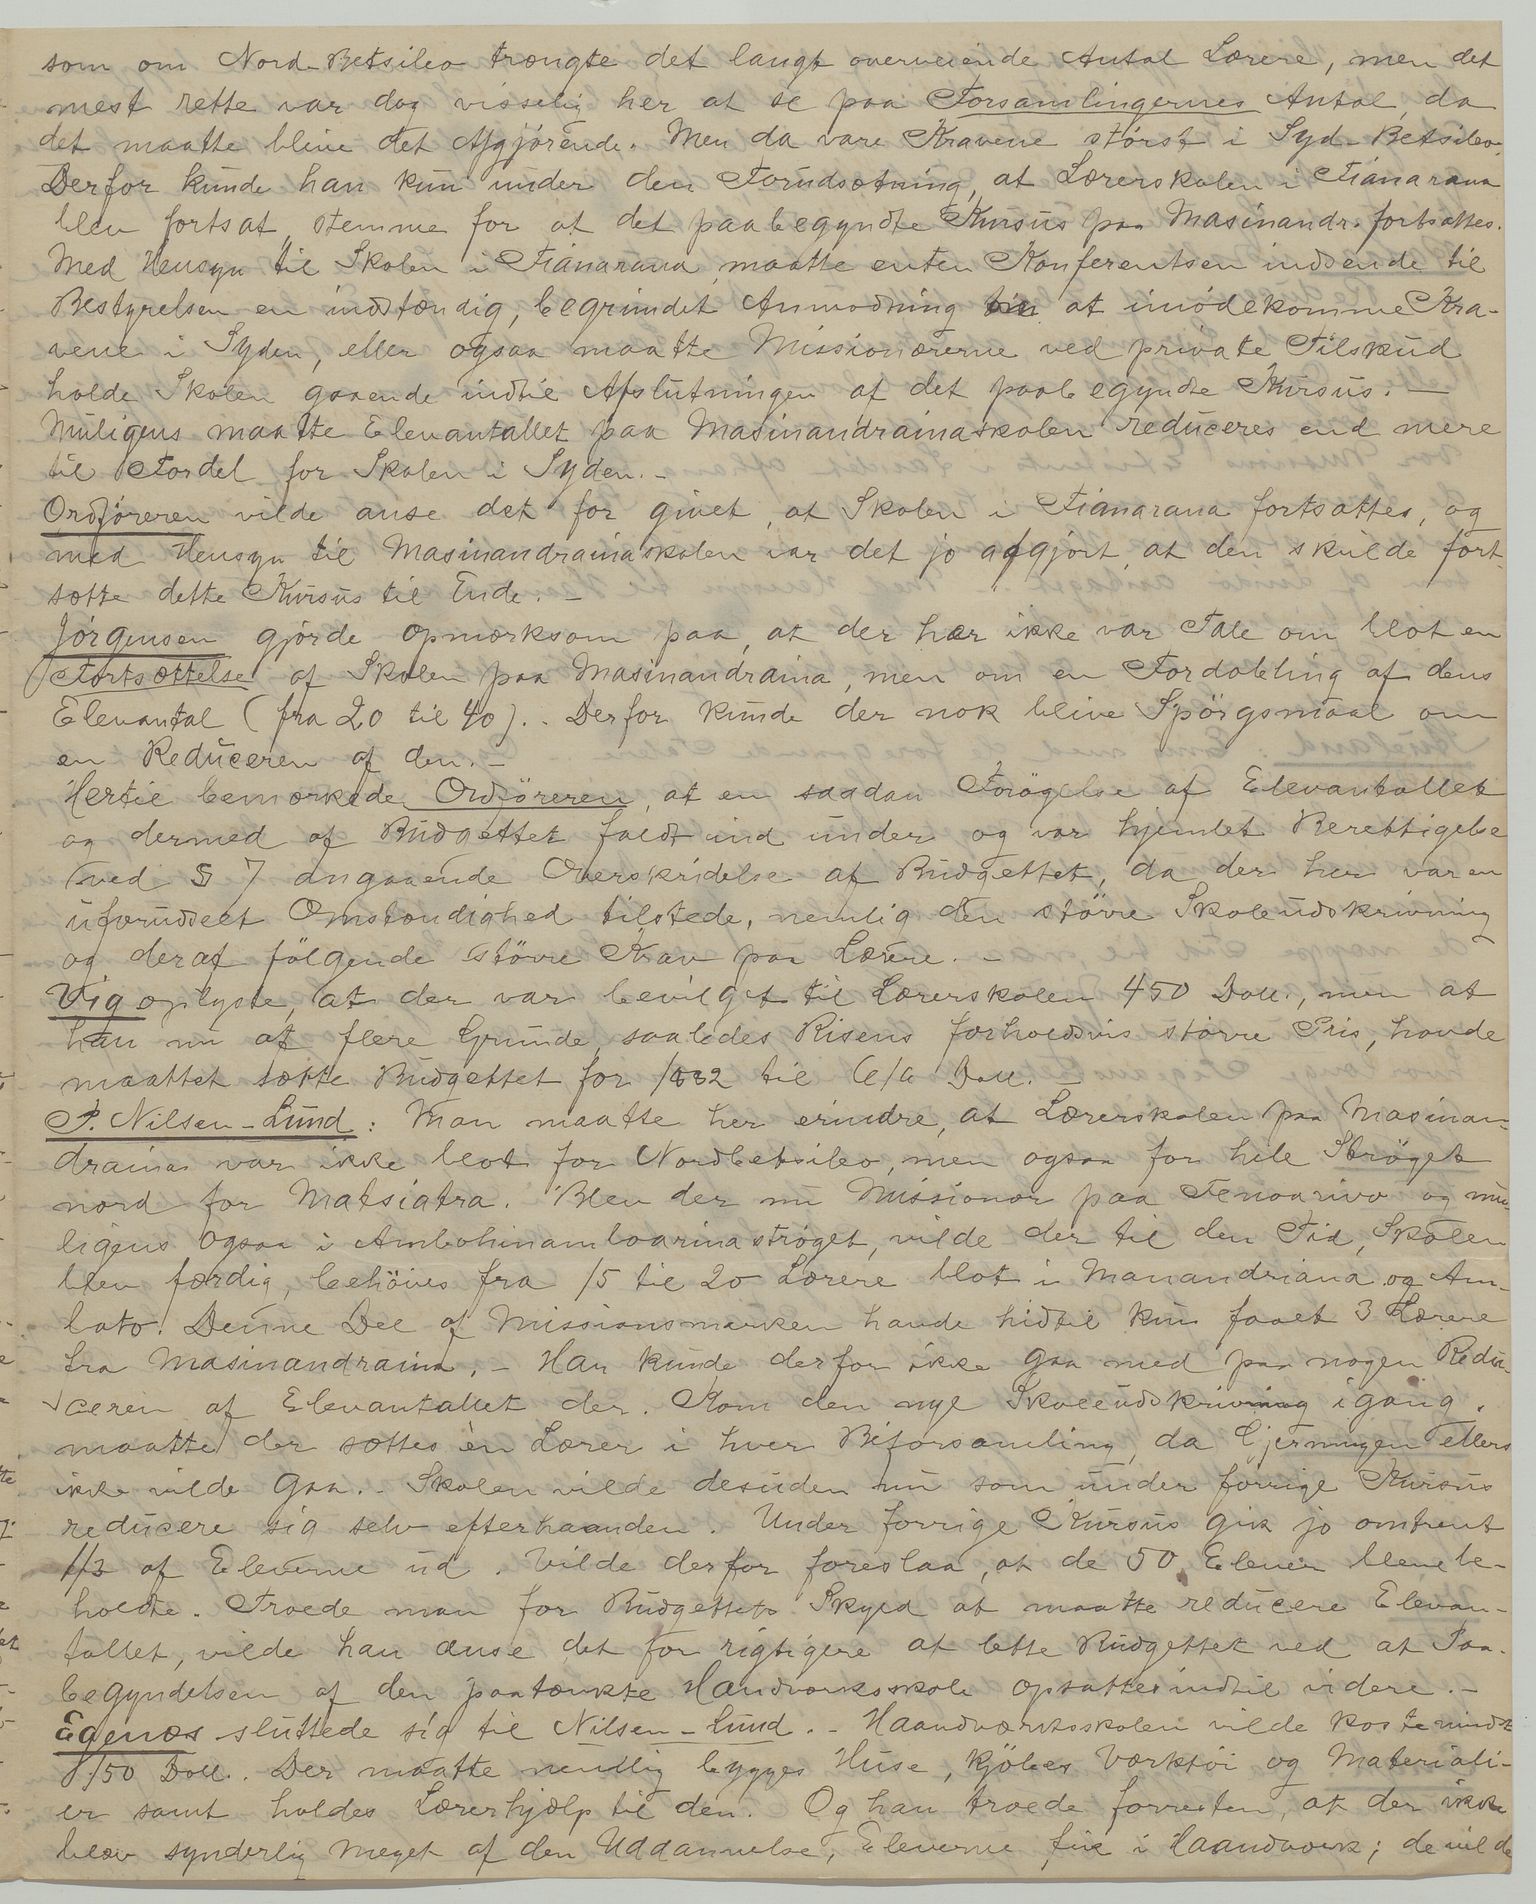 som om Nord-Betsileo trængte det langt overveiende Antal Lærere, men det
mest rette var dog visselig her at se paa Forsamlingernes Antal, da
det maatte blive det Afgjørende. Men da vare Kravene størst i Syd-Betsileo.
Derfor kunde han kun under den Forudsætning, at Lærerskolen i Fianarana
blev fortsat, stemme for at det paabegyndte Kursus paa Masinandr. fortsattes.
Med Hensyn til Skolen i Fianarana maatte enten Konferentsen indsende til
Bestyrelsen en indstændig, begrundet Anmodning om at imødekomme Kra-
vene i Syden, eller ogsaa maatte Missionærerne ved private Tilskud
holde Skolen gaaende indtil Afslutningen af det paabegyndte Kursus. —
Muligens maatte Elevantallet paa Masinandrainaskolen reduceres end mere
til Fordel for Skolen i Syden. -
Ordføreren vilde anse det for givet, at Skolen i Fianarana fortsattes, og
med Hensyn til Masinandrainaskolen var det jo afgjort, at den skulde fort-
sætte dette Kursus til Ende. -
Jørgensen gjorde opmærksom paa, at der her ikke var Tale om blot en
Fortsættelse af Skolen paa Masinandraina, men om en Fordobling af dens
Elevantal (fra 20 til 40). - Derfor kunde der nok blive Spørgsmaal om
en Reduceren af den. -
Hertil bemærkede Ordføreren, at en saadan Forøgelse af Elevantallet
og dermed af Budgettet faldt ind under og var hjemlet Berettigelse
ved § 7 angaaende Overskridelse af Budgettet, da der her var en
uforudseet Omstændighed tilstede, nemlig den større Skoleudskrivning
og deraf følgende større Krav paa Lærere. -
Vig oplyste, at der var bevilget til Lærerskolen 450 Doll., men at
han nu af flere Grunde, saaledes Risens forholdsvis større Pris, havde
maattet sætte Budgettet for 1882 til Doll. —
P. Nilsen-Lund: Man maatte her erindre, at Lærerskolen paa Masinan-
draina var ikke blot for Nordbetsileo, men ogsaa for hele Strøget
nord for Matsiatra. Blev der nu Missionær paa Fenoarivo og mu-
ligens ogsaa i Ambohinamboarinastrøget, vilde der til den Tid, Skolen
blev færdig, behøves fra 15 til 20 Lærere blot i Manandriana og Am-
bato. Denne Del af Missionsmarken havde hidtil kun faaet 3 Lærere
fra Masinandraina. - Han kunde derfor ikke gaa med paa nogen Redu-
ceren af Elevantallet der. Kom den nye Skoleudskrivning igang,
maatte der sættes èn Lærer i hver Biforsamling, da Gjerningen ellers
ikke vilde gaa. - Skolen vilde desuden nu som under forrige Kursus
reducere sig selv efterhaanden. Under forrige Kursus gik jo omtrent
1/3 af Eleverne ud. Vilde derfor foreslaa, at de 50 Elever bleve be-
holdte. Troede man for Budgettets Skyld at maatte reducere Elevan-
tallet, vilde han anse det for rigtigere at lette Budgettet ved at Paa-
begyndelsen af den paatænkte Handværksskole opsattes indtil videre. -
Egenæs sluttede sig til Nilsen-Lund. - Haandværksskolen vilde koste mindst
150 Doll. Der maatte nemlig bygges Huse, kjøbes Værktøi og Materiali-
er samt holdes Lærerhjælp til den. Og han troede forresten, at der ikke
blev synderlig meget af den Uddannelse, Eleverne fik i Haandværk; de vilde